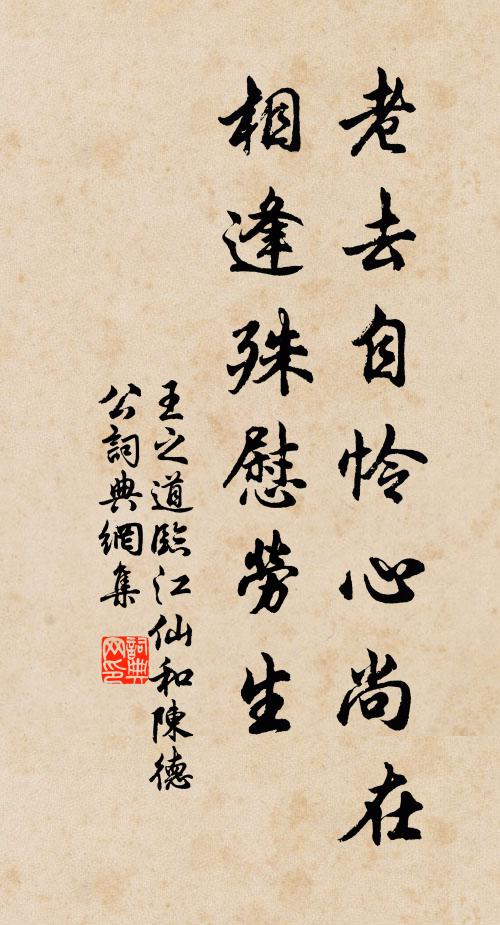 老去自怜心尚在
相逢殊慰勞生
王之道臨江仙和陳德
公詞典網集
詞典
网印